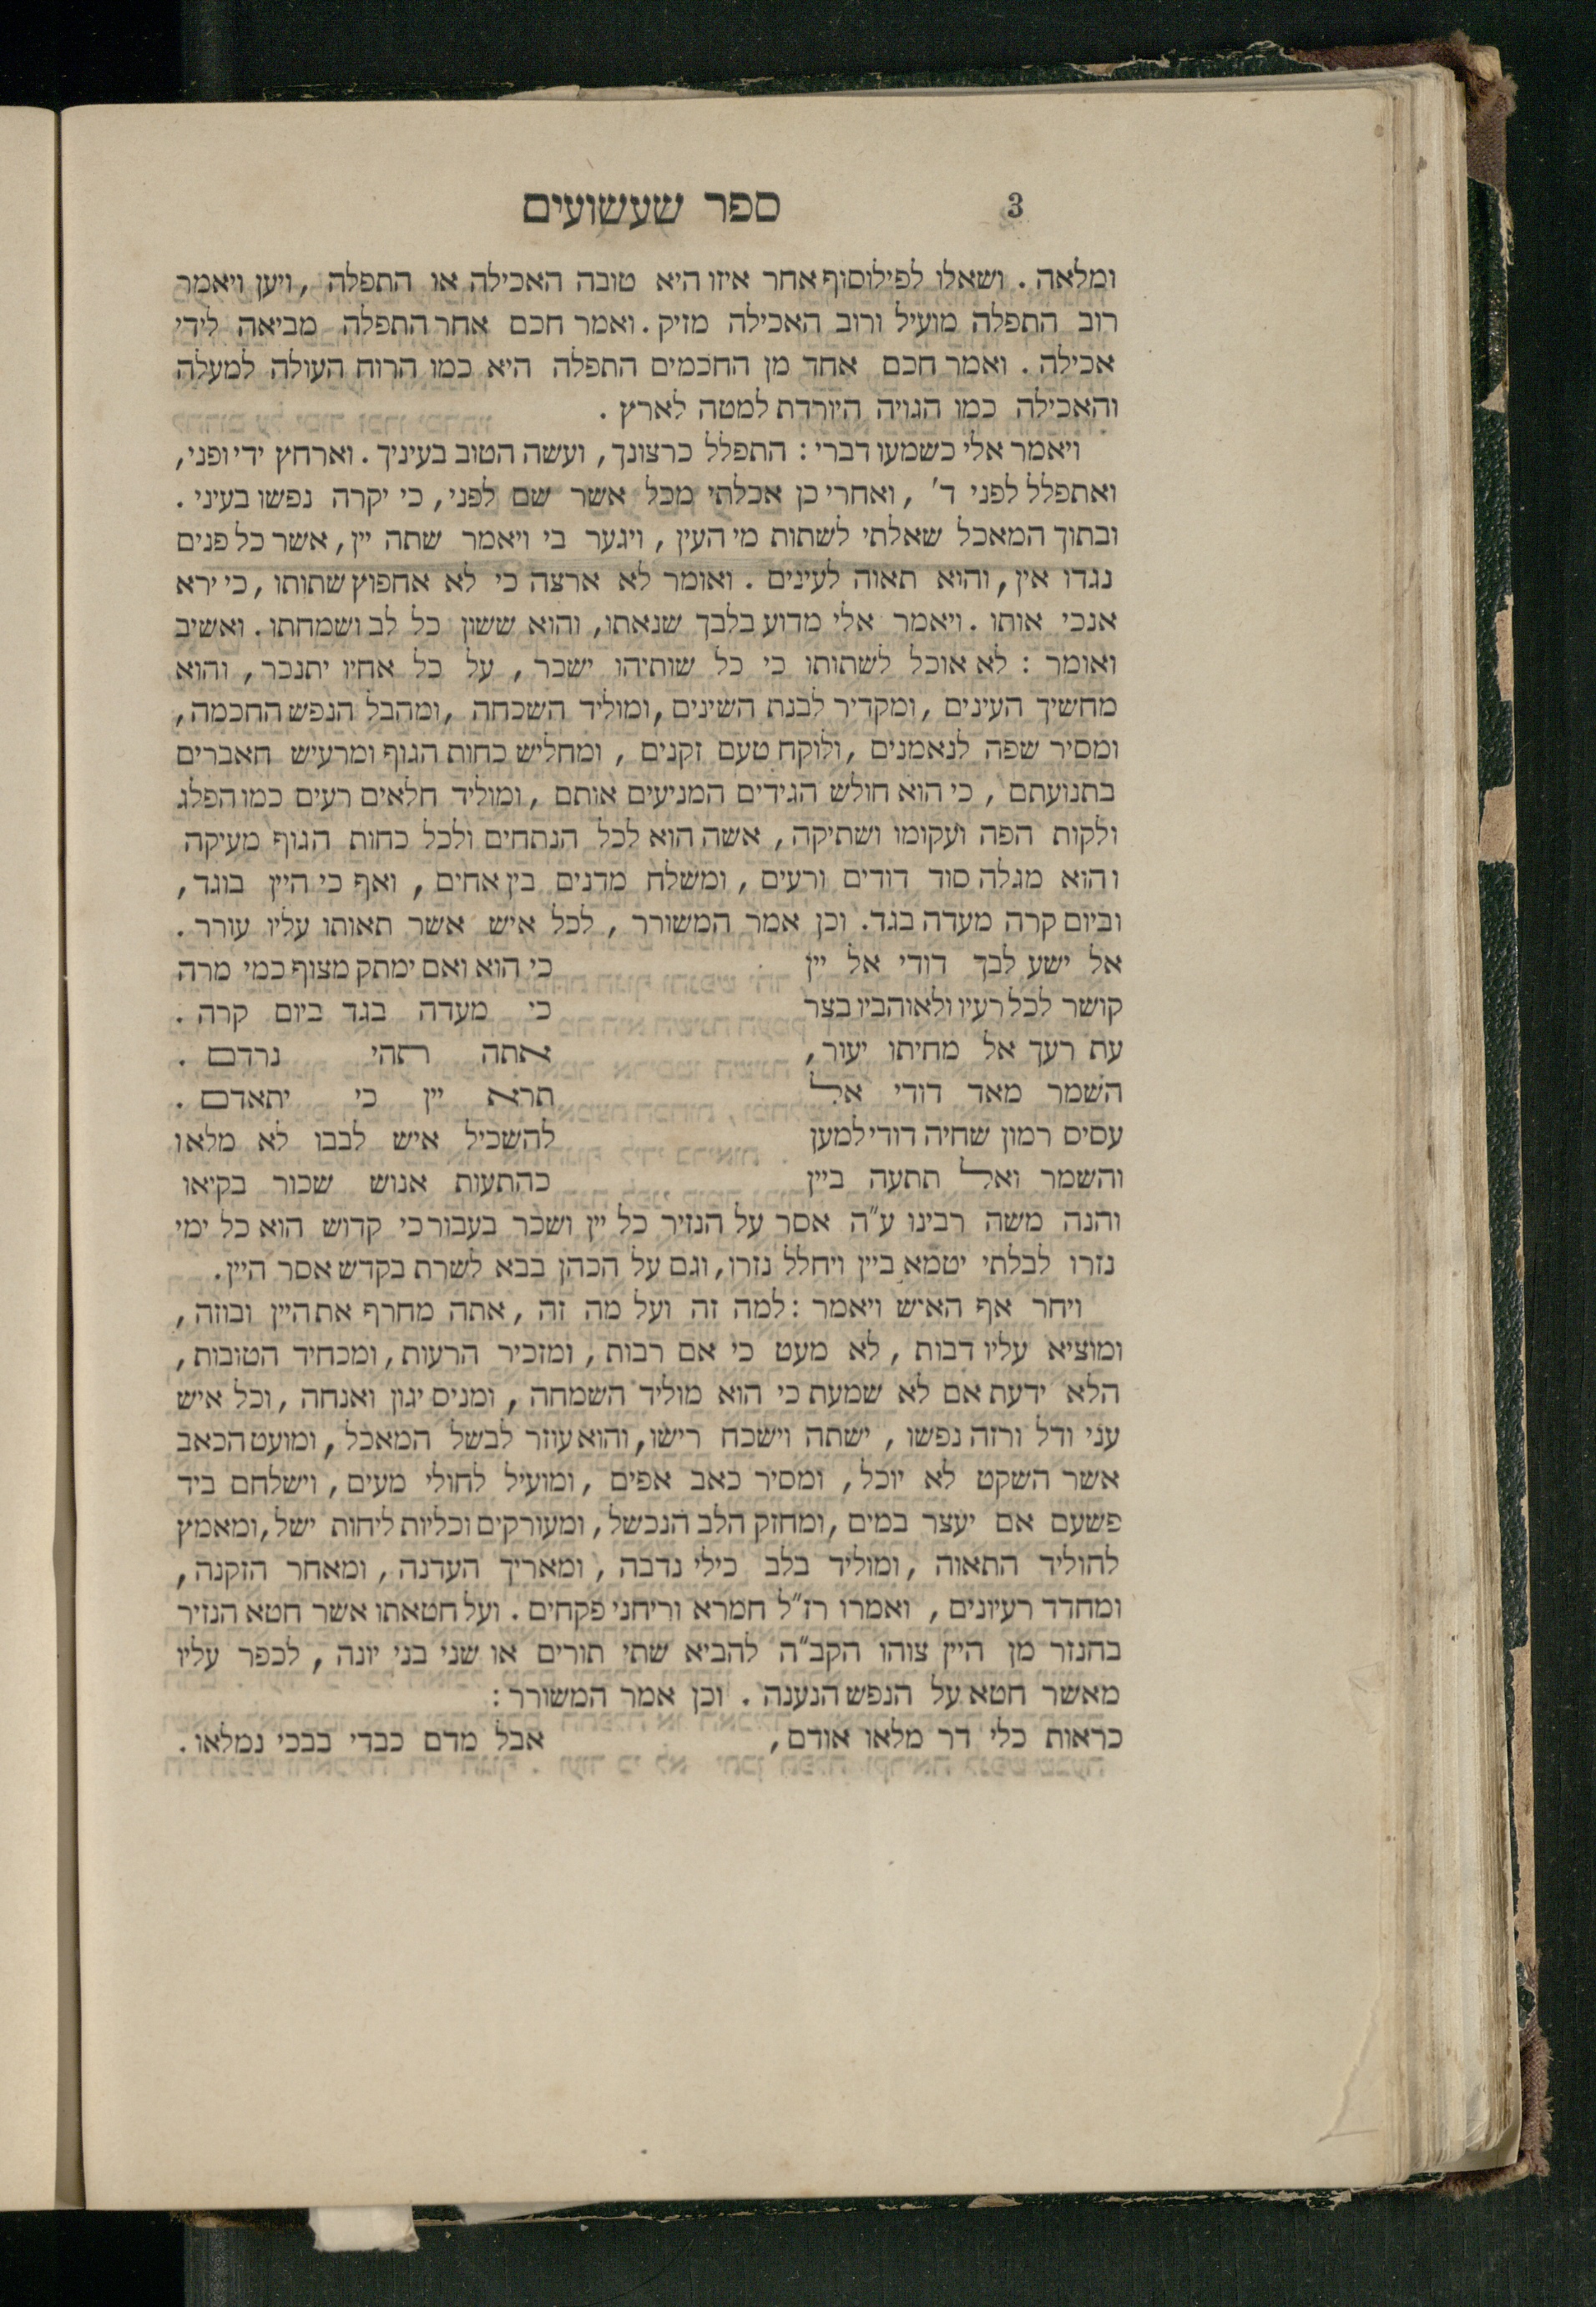 3 ספר שעשועים
ומלאה. ושאלו לפילוסוף אחר איזו היא טובה האכילה או התפלה, ויען ויאמר
רוב התפלה מועיל ורוב האכילה מזיק. ואמר חכם אחר התפלה מביאה לידי
אכילה. ואמר חכם אחד מן החכמים התפלה היא כמו הרוח העולה למעלה
והאכילה כמו הגויה היורדת למטה לארץ.
ויאמר אלי כשמעו דברי: התפלל כרצונך, ועשה הטוב בעיניך. וארחץ ידי ופני,
ואתפלל לפני ד', ואחרי כן אכלתי מכל אשר שם לפני, כי יקרה נפשו בעיני.
ובתוך המאכל שאלתי לשתות מי העין, ויגער בי ויאמר שתה יין, אשר כל פנים
נגדו אין, והוא תאוה לעינים. ואומר לא ארצה כי לא אחפוץ שתותו, כי ירא
אנכי אותו. ויאמר אלי מדוע בלבך שנאתו, והוא ששון כל לב ושמחתו. ואשיב
ואומר: לא אוכל לשתותו כי כל שותיהו ישכר, על כל אחיו יתנכר, והוא
מחשיך העינים, ומקדיר לבנת השינים, ומוליד השכחה, ומהבל הנפש החכמה,
ומסיר שפה לנאמנים, ולוקח טעם זקנים, ומחליש כחות הגוף ומרעיש האברים
בתנועתם, כי הוא חולש הגידים המניעים אותם, ומוליד חלאים רעים כמו הפלג
ולקות הפה ועקומו ושתיקה, אשה הוא לכל הנתחים ולכל כחות הגוף מעיקה
והוא מגלה סוד דודים ורעים, ומשלח מדנים בין אחים, ואף כי היין בוגד,
וביום קרה מעדה בגד. וכן אמר המשורר, לכל איש אשר תאותו עליו עורר.
אל ישע לבך דודי אל יין כי הוא ואם ימתק מצוף כמי מרה
קושר לכל רעיו ולאוהביו בצר כי מעדה בגד ביום קרה.
עת רעך אל מחיתו יעור, אתה תהי נרדם.
השמר מאד דודי אל תרא יין כי יתאדם.
עסיס רמון שחיה דודי למען להשכיל איש לבבו לא מלאו
והשמר ואל תתעה ביין כהתעות אנוש שכור בקיאו
והנה משה רבינו ע"ה אסר על הנזיר כל יין ושכר בעבור כי קדוש הוא כל ימי
נזרו לבלתי יטמא ביין ויחלל נזרו, וגם על הכהן בבא לשרת בקדש אסר היין.
ויחר אף האיש ויאמר: למה זה ועל מה זה, אתה מחרף את היין ובוזה,
ומוציא עליו דבות, לא מעט כי אם רבות, ומזכיר הרעות, ומכחיד הטובות,
הלא ידעת אם לא שמעת כי הוא מוליד השמחה, ומניס יגון ואנחה, וכל איש
עני ודל ורזה נפשו, ישתה וישכח רישו, והוא עוזר לבשל המאכל, ומועט הכאב
אשר השקט לא יוכל, ומסיר כאב אפים, ומועיל לחולי מעים, וישלחם ביד
פשעם אם יעצר במים, ומחזק הלב הנכשל, ומעורקים וכליות ליחות ישל, ומאמץ
להוליד התאוה, ומוליד בלב כילי נדבה, ומאריך העדנה, ומאחר הזקנה,
ומחדד רעיונים, ואמרו רז"ל חמרא וריחני פקחים. ועל חטאתו אשר חטא הנזיר
בהנזר מן היין צוהו הקב"ה להביא שתי תורים או שני בני יונה, לכפר עליו
מאשר חטא על הנפש הנענה. וכן אמר המשורר:
כראות כלי דר מלאו אודם, אבל מדם כבדי בבכי נמלאו.